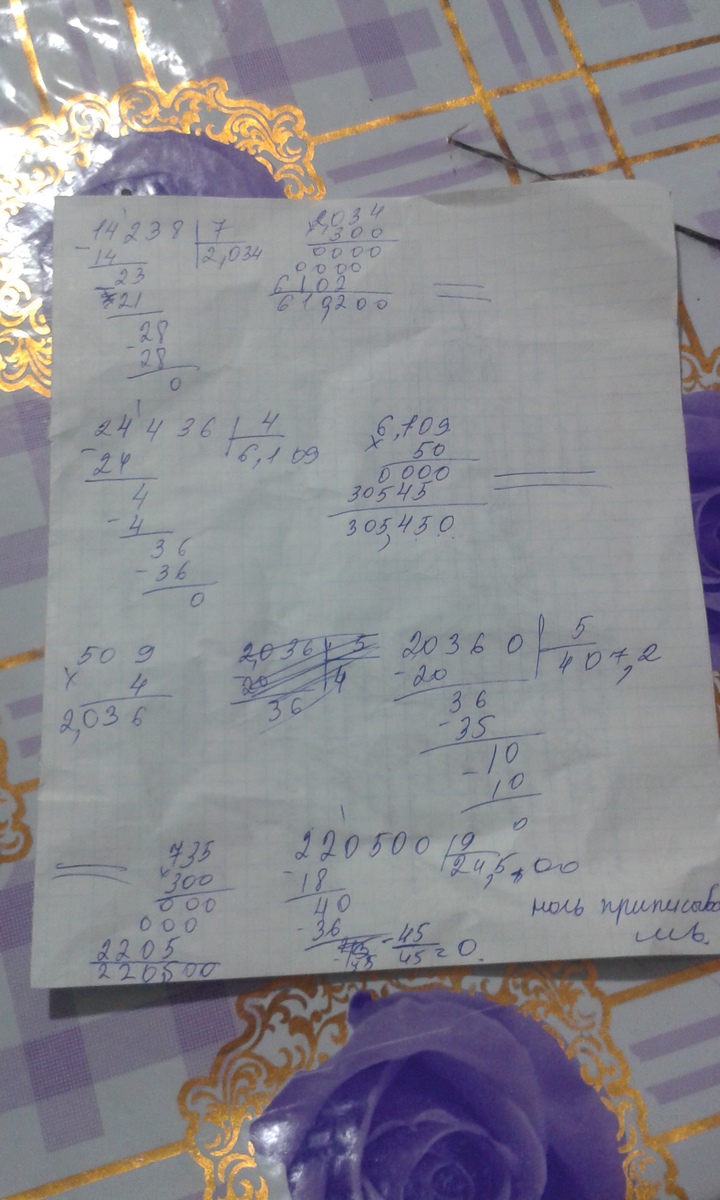 14'238 | 7
- 14 2,034
- 23
21
- 28
28
0
2,034
× 300
0000
0000
6102
619200
24'436 | 4
- 24 6,109
4
- 4
36
- 36
0
6,109
× 50
0000
30545
305,450.
509
× 4
2,036
2,036 | 5
- 20 4
36
2,0360 | 5
- 20 407,2
36
- 35
- 10
10
0
735
× 300
000
000
2205
220500
220500 | 9
- 18 24,5,00
40
- 36
- 45
45 = 0.
ноль приписыва
ль.